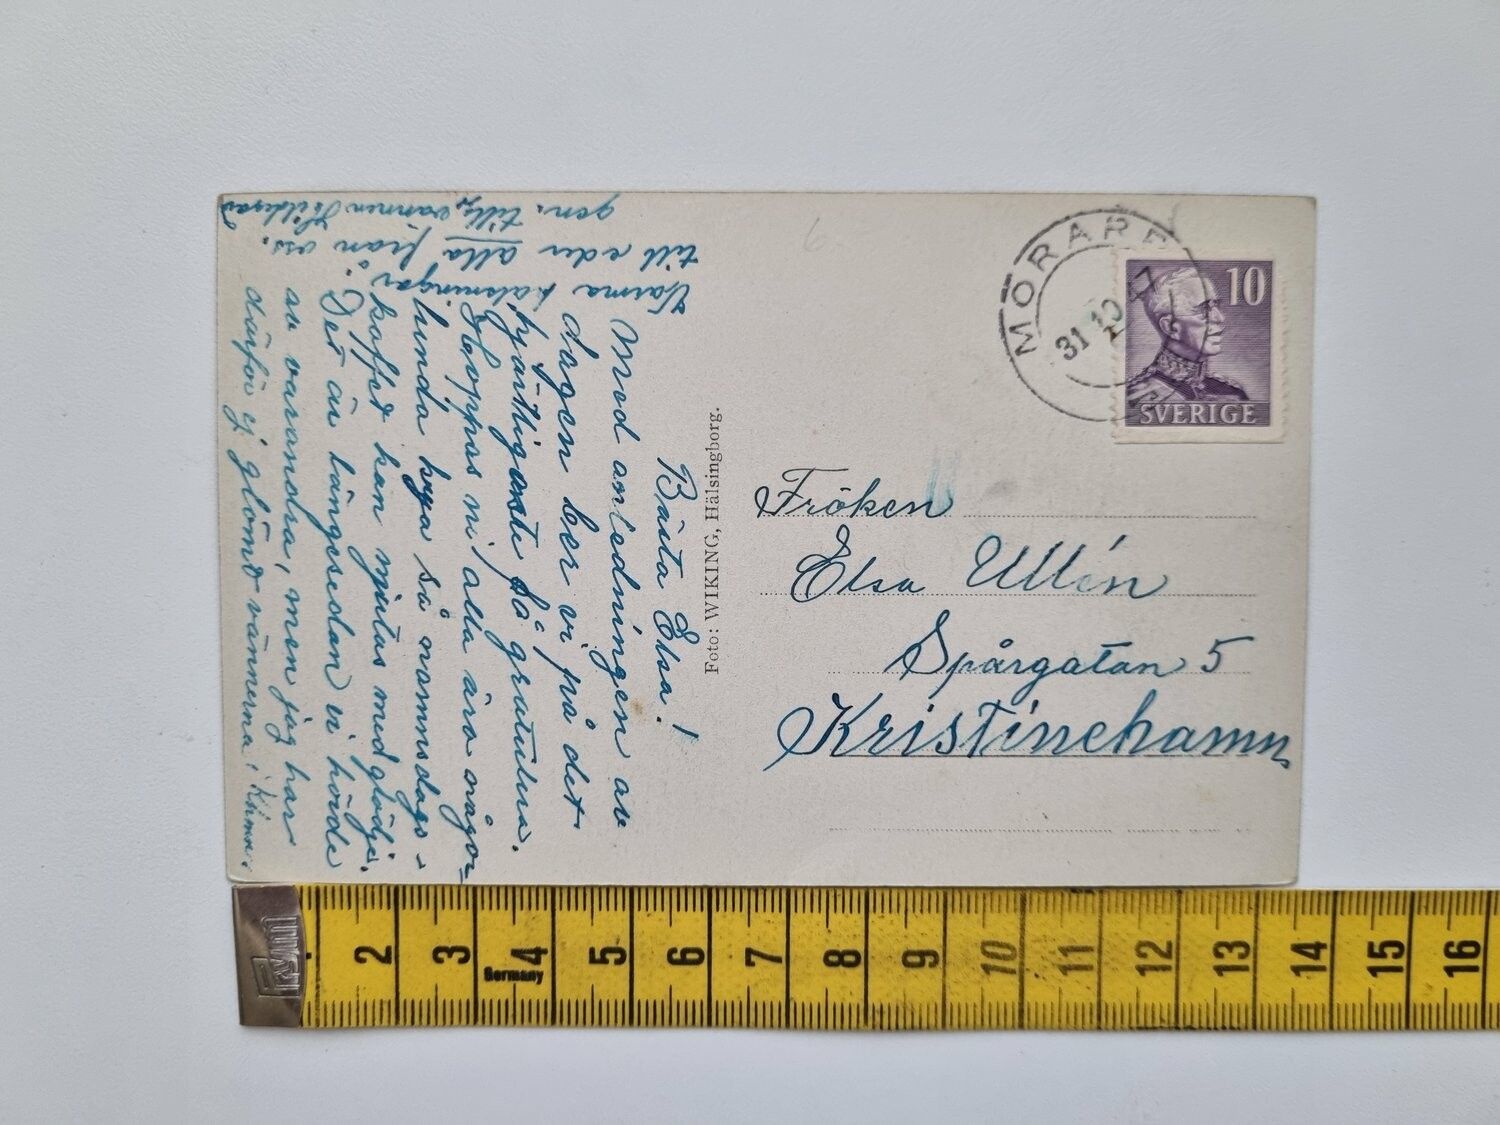 Bästa Elsa!
Med anledningen av
dagen ber vi på det
hjärtligaste få gratulera.
Hoppas ni alla äro någor=
lunda krya så namnsdags-
kaffet kan njutas med glädje.
Det är längesedan vi hörde
av varandra, men jag har
därför ej glömt vännerna i
Varma hälsningar
till eder alla från oss.
gen. tillg. vännen
Foto: WIKING, Hälsingborg.
MORARP
31 10
10
SVERIGE
Fröken
Elsa Ullén
Spårgatan 5
Kristinehamn
Prym
2 3 4 5 6 7 8 9 10 11 12 13 14 15 16
Germany